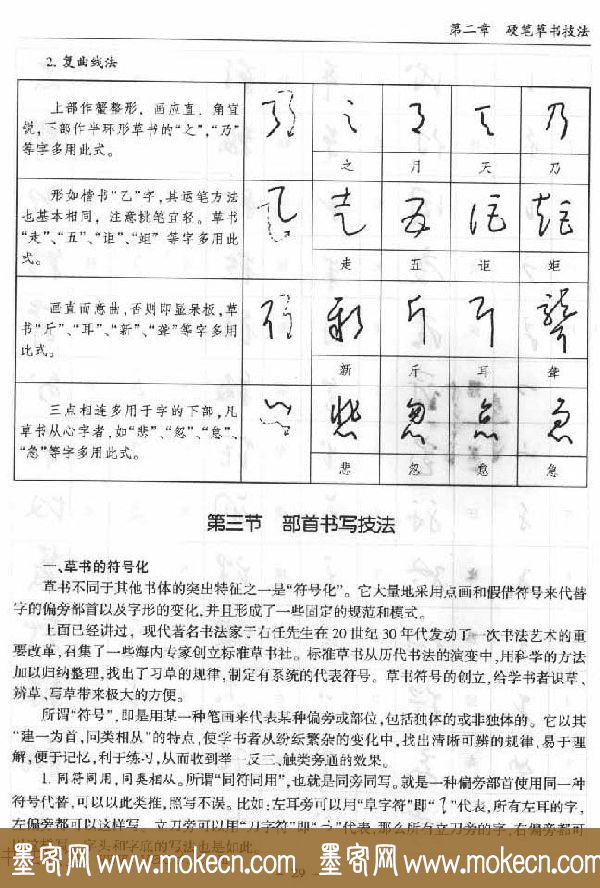 第二章 硬笔草书技法
2. 复曲线法
上部作蟹整形，画应直，角宜
锐，下部作半环形草书的“之”，“乃”
等字多用此式。
之 月 天 乃
形如楷书“乙”字，其运笔方法
也基本相同，注意挑笔宜轻。草书
“走”、“五”、“讵”、“姖”等字多用此
式。
走 五 讵 姖
画直而意曲，否则即显呆板，草
书“斤”、“耳”、“新”、“聋”等字多用
此式。
新 斤 耳 聋
三点相连多用于字的下部，凡
草书从心字者，如“悲”、“忽”、“怠”、
“急”等字多用此式。
悲 忽 怠 急
第三节 部首书写技法
一、草书的符号化
草书不同于其他书体的突出特征之一是“符号化”。它大量地采用点画和假借符号来代替
字的偏旁部首以及字形的变化，并且形成了一些固定的规范和模式。
上面已经讲过，现代著名书法家于右任先生在20世纪30年代发动了一次书法艺术的重
要改革，召集了一些海内专家创立标准草书社。标准草书从历代书法的演变中，用科学的方法
加以归纳整理，找出了习草的规律，制定有系统的代表符号。草书符号的创立，给学书者识草、
辨草、写草带来极大的方便。
所谓“符号”，即是用某一种笔画来代表某种偏旁或部位，包括独体的或非独体的。它以其
“建一为首，同类相从”的特点，使学书者从纷纭繁杂的变化中，找出清晰可辨的规律，易于理
解，便于记忆，利于练习，从而收到举一反三、触类旁通的效果。
1. 同符同用，同类相从。所谓“同符同用”，也就是同旁同写。就是一种偏旁部首使用同一种
符号代替，可以以此类推，照写不误。比如：左耳旁可以用“阜字符”即“”代表，所有左耳的字，
左偏旁都可以这样写。立刀旁可以用“刀字符”即“”代表，那么所有立刀旁的字，右偏旁都可
字头和字底的写法也是如此。
墨客网 www.mokecn.com 墨客网 www.mokecn.com